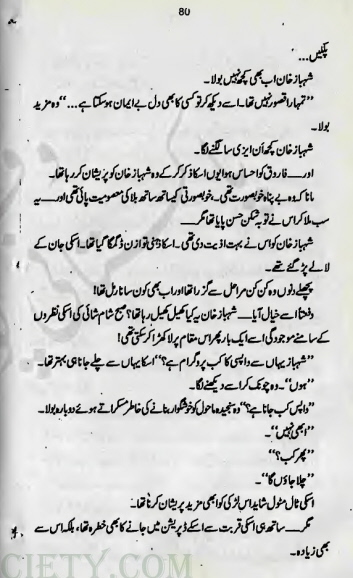 80
پلکیں...
شہباز خان اب بھی کچھ نہیں بولا۔
”تمہارا قصور نہیں تھا۔ اسے دیکھ کر تو کسی کا بھی دل بے ایمان ہو سکتا ہے...“ وہ مزید
بولا۔
شہباز خان کچھ اَن ایزی سا لگنے لگا۔
اور—— فاروق کو احساس ہوا یوں اسکا ذکر کر کے وہ شہباز خان کو پریشان کر رہا تھا۔
مانا کہ وہ بے پناہ خوبصورت تھی۔ خوبصورتی کیساتھ ساتھ بلا کی معصومیت پائی تھی اور—— یہ
سب ملا کر اس نے توبہ شکن حسن پایا تھا مگر——
شہباز خان کو اس نے بہت اذیت دی تھی۔ اسکا ذہنی توازن ڈگمگا گیا تھا۔ اسکی جان کے
لالے پڑ گئے تھے۔
پچھلے دنوں وہ کن کن مراحل سے گزرا تھا اور اب بھی کون سا نارمل تھا!
دفعتاً اسے خیال آیا—— شہباز خان یہ کیا کھیل کھیل رہا تھا؟ صبح شام شائی کی اسکی نظروں
کے سامنے موجودگی اسے ایک بار پھر اس مقام پر لا کھڑا کر سکتی تھی!
”شہباز یہاں سے واپسی کا کب پروگرام ہے؟“ اسکا یہاں سے چلے جانا ہی بہتر تھا۔
”ہوں“۔ وہ چونک کر اسے دیکھنے لگا۔
”واپس کب جانا ہے؟“ وہ سنجیدہ ماحول کو خوشگوار بنانے کی خاطر مسکراتے ہوئے دوبارہ بولا۔
”ابھی نہیں“۔
”پھر کب؟“
”چلا جاؤں گا“۔
اسکی ٹال مٹول شاید اس لڑکی کو ابھی مزید پریشان کرنا تھا۔
مگر—— ساتھ ہی اسکی قربت سے اسکے ڈپریشن میں جانے کا بھی خطرہ تھا، بلکہ اس سے
بھی زیادہ۔
CIETY.COM